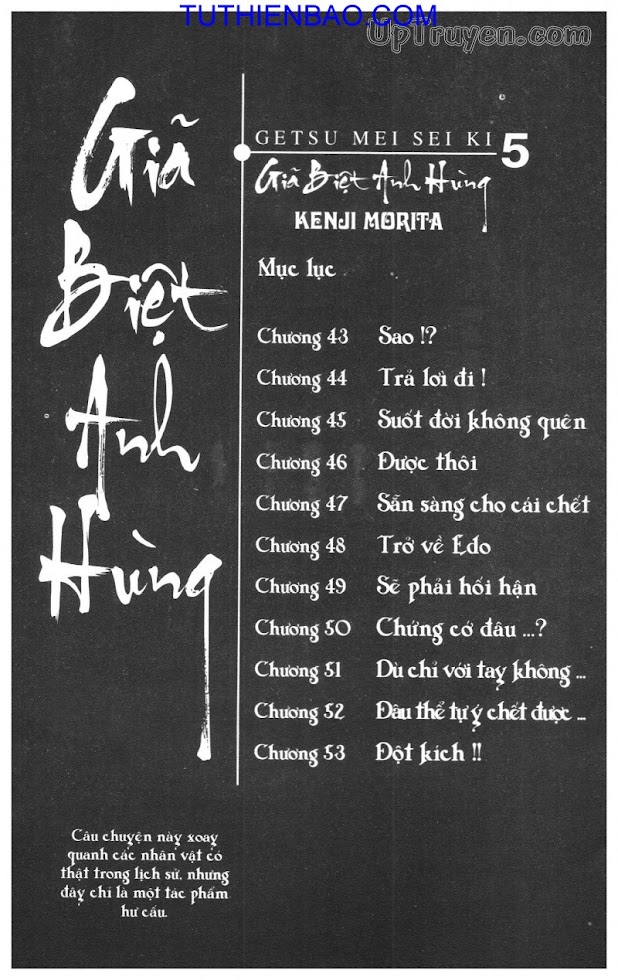 TUTHIENBAO.COM
UpTruyen.com
Giã
Biệt
Anh
Hùng
GETSU MEI SEI KI 5
Giã Biệt Anh Hùng
KENJI MORITA
Mục lục
Chương 43 Sao !?
Chương 44 Trả lời đi !
Chương 45 Suốt đời không quên
Chương 46 Được thôi
Chương 47 Sẵn sàng cho cái chết
Chương 48 Trở về Edo
Chương 49 Sẽ phải hối hận
Chương 50 Chứng cớ đâu ...?
Chương 51 Dù chỉ với tay không ...
Chương 52 Đâu thể tự ý chết được ...
Chương 53 Đột kích !!
Câu chuyện này xoay
quanh các nhân vật có
thật trong lịch sử, nhưng
đây chỉ là một tác phẩm
hư cấu.